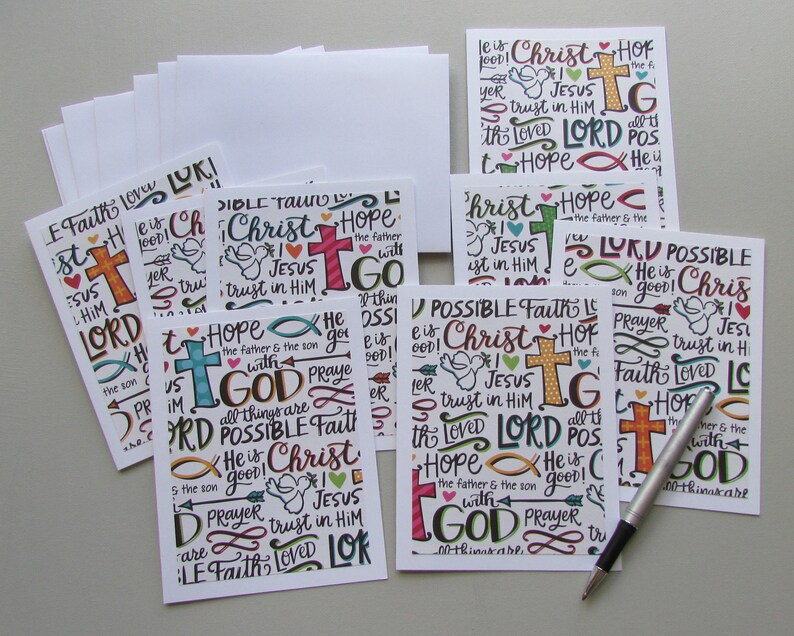 Christ HOP
good!
I
JESUS
trust in HIM
LOVED LORD
all the
POS
HOPE
He is
Faith LOVED
LORD
I
JESUS
trust in HIM
LORD
the son
He is
good!
Faith
Christ HOPE
the father
I
JESUS with
GO
trust in HIM
HOPE
the father & the
with
JESUS
trust in HIM
LORD POSSIBLE
He is
good!
Chris
& the son
PRAYER I
trust in
Faith LOVED
HOPE
the father & the
with
GOD
all things are
HOPE He is
the father & the son
with
GOD PRAYER
trust
in HiM
all things are
POSSIBLE Faith
He is
good!
Christ
& the son I
JESUS
PRAYER
trust in HiM
are
Faith LOVED
POSSIBLE Faith
He is
good!
Christ HOP
the fa
I
JESUS with
PRAYER
trust in HiM
LOVED LORD
all thing
POSSI
HOPE He is
good!
the father & the son
with
GOD PRAYER
all things are